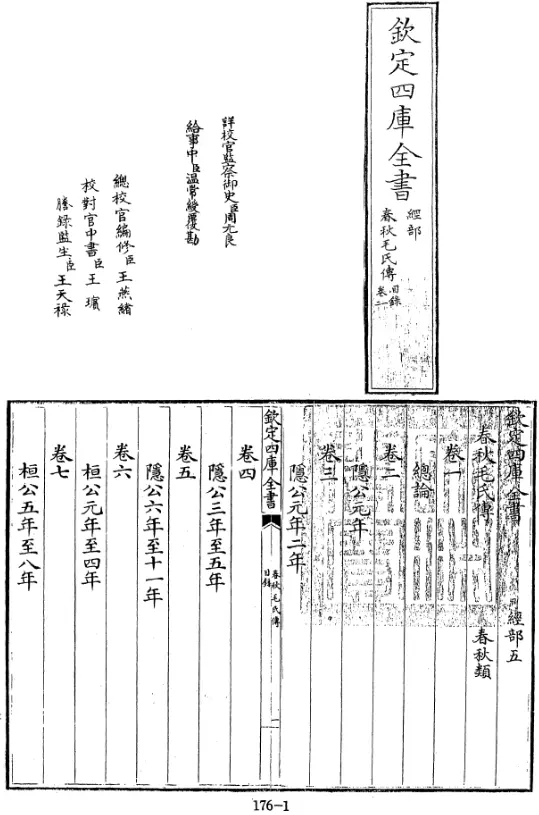 欽定四庫全書
經部
春秋毛氏傳
目錄
卷一
詳校官監察御史臣周元良
給事中臣溫常綬覆勘
總校官編修臣王燕緒
校對官中書臣王璸
謄錄監生臣王天祿
欽定四庫全書
經部五
春秋毛氏傳
春秋類
卷一
總論
卷二
隱公元年
卷三
隱公元年二年
欽定四庫全書
春秋毛氏傳
目錄
一
卷四
隱公三年至五年
卷五
隱公六年至十一年
卷六
桓公元年至四年
卷七
桓公五年至八年
176-1